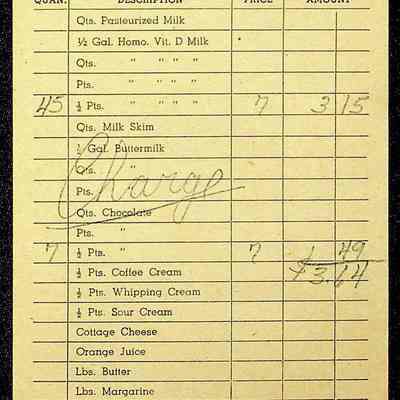 QUAN. DESCRIPTION PRICE AMOUNT
Qts. Pasteurized Milk
½ Gal. Homo. Vit. D Milk
Qts. " " " "
Pts. " " " "
45 ½ Pts. " " " " 7 3 15
Qts. Milk Skim
½ Gal. Buttermilk
Qts. "
Charge
Pts. "
Qts. Chocolate
Pts. "
7 ½ Pts. " 7 49
½ Pts. Coffee Cream $3.64
½ Pts. Whipping Cream
½ Pts. Sour Cream
Cottage Cheese
Orange Juice
Lbs. Butter
Lbs. Margarine